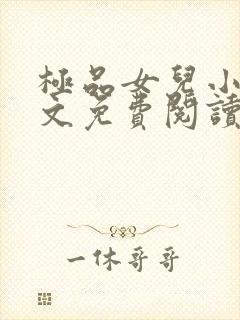 極品女兒小
文免費閱讀
一休哥哥